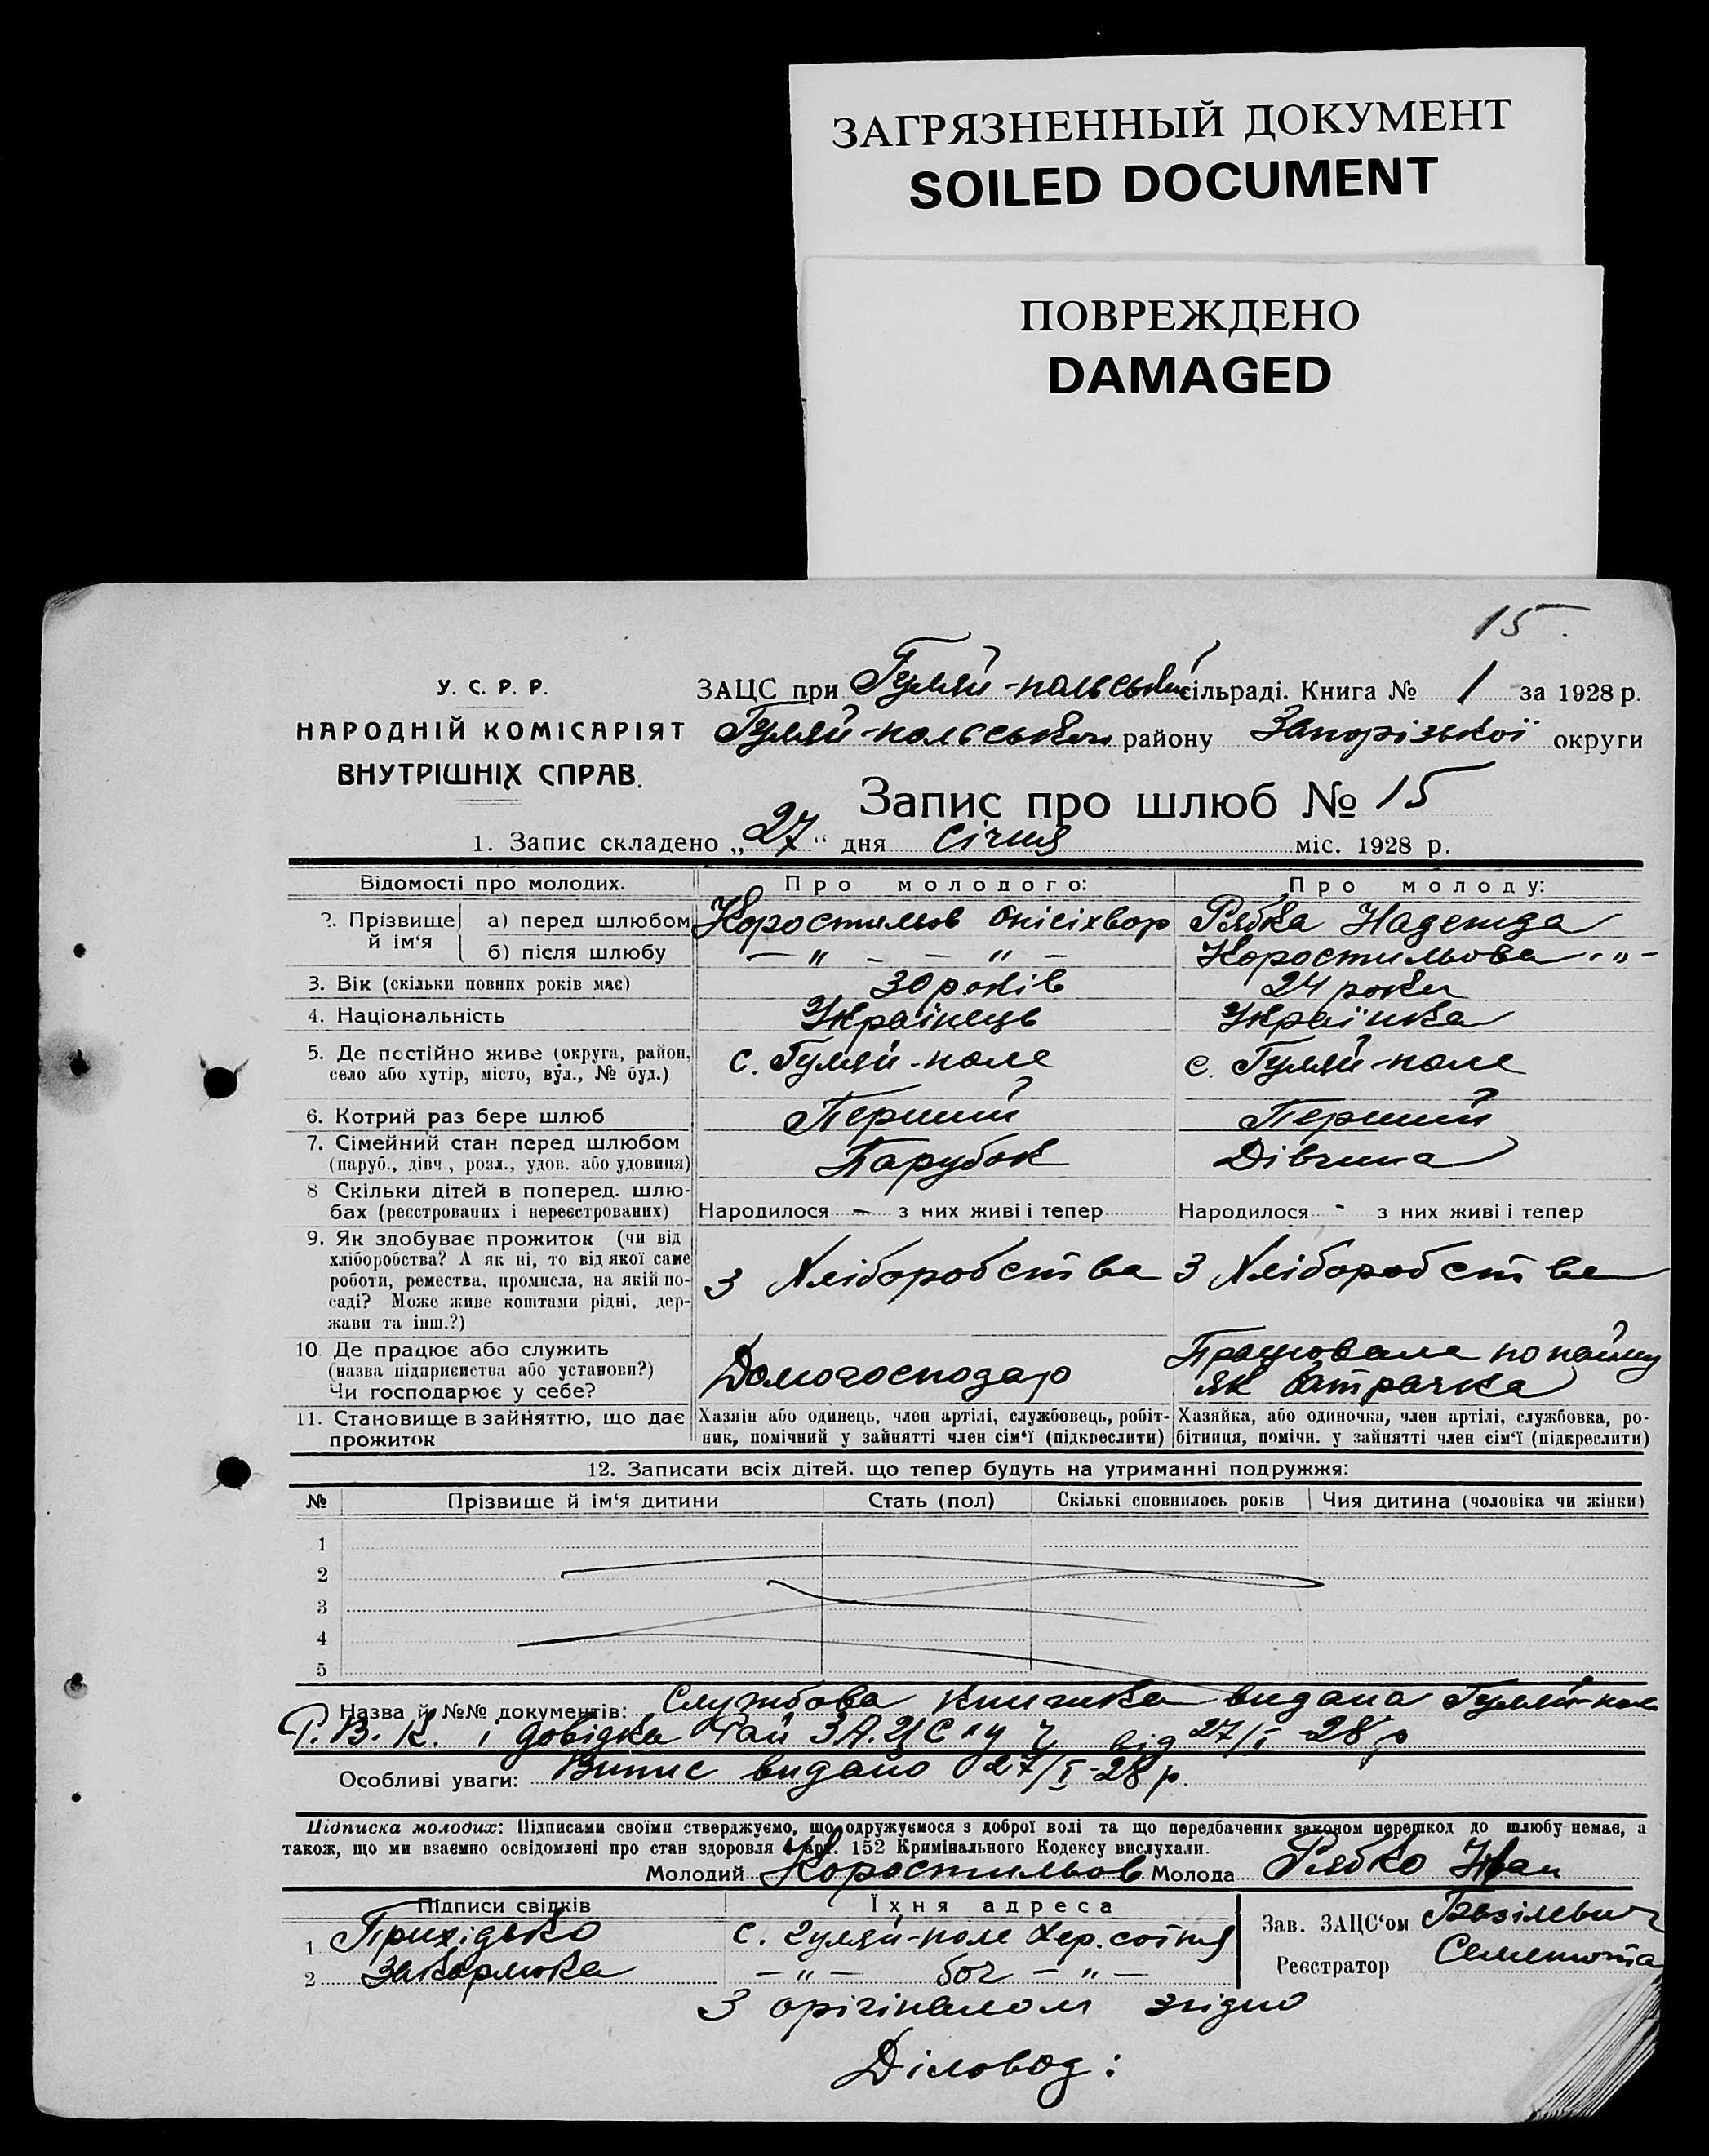 ЗАГРЯЗНЕННЫЙ ДОКУМЕНТ
SOILED DOCUMENT
ПОВРЕЖДЕНО
DAMAGED
15.
У. С. Р. Р.
НАРОДНІЙ КОМІСАРІЯТ
ВНУТРІШНІХ СПРАВ.
ЗАЦС при Гуляй-польській сільраді. Книга № 1 за 1928 р.
Гуляй-польського району Запорізької округи
Запис про шлюб № 15
1. Запис складено „27“ дня Січня міс. 1928 р.
Відомості про молодих. Про молодого: Про молоду:
2. Прізвище й ім'я а) перед шлюбом Коростильов Онісіхвор Рябка Надежда
б) після шлюбу — " — — " — Коростильова -"-
3. Вік (скільки повних років має) 30 років 24 роки
4. Національність Українець Українка
5. Де постійно живе (округа, район, село або хутір, місто, вул., № буд.) с. Гуляй-поле с. Гуляй-поле
6. Котрий раз бере шлюб Перший Перший
7. Сімейний стан перед шлюбом (паруб., дівч., розл., удов. або удовиця) Парубок Дівчина
8 Скільки дітей в поперед. шлюбах (реєстрованих і нереєстрованих) Народилося — з них живі і тепер Народилося - з них живі і тепер
9. Як здобуває прожиток (чи від хліборобства? А як ні, то від якої саме роботи, ремества, промисла, на якій посаді? Може живе коштами рідні, держави та інш.?) З Хліборобства З Хліборобства
10. Де працює або служить (назва підприємства або установи?) Чи господарює у себе? Домогосподар Працювала по найму як батрачка
11. Становище в зайняттю, що дає прожиток Хазяїн або одинець, член артілі, службовець, робітник, помічний у зайнятті член сім'ї (підкреслити) Хазяйка, або одиночка, член артілі, службовка, робітниця, помічн. у зайнятті член сім'ї (підкреслити)
12. Записати всіх дітей, що тепер будуть на утриманні подружжя:
№ Прізвище й ім'я дитини Стать (пол) Скількі сповнилось років Чия дитина (чоловіка чи жінки)
1
2
3
4
5
Назва й №№ документів: Службова книжка видана Гуляй-пол
Р.В.К. і довідка Рай ЗАЦС'у від 27/I-28 р
Особливі уваги: Випис видано 27/I-28 р.
Підписка молодих: Підписами своїми стверджуємо, що одружуємося з доброї волі та що передбачених законом перешкод до шлюбу немає, а
також, що ми взаємно освідомлені про стан здоровля й арт. 152 Кримінального Кодексу вислухали.
Молодий Коростильов Молода Рябко
Підписи свідків Їхня адреса
1 Прихідько с. Гуляй-поле Хер. сотня
2 Закарлюка — " — — " —
Зав. ЗАЦС'ом Базілевич
Реєстратор
З орігіналом згідно
Діловод: